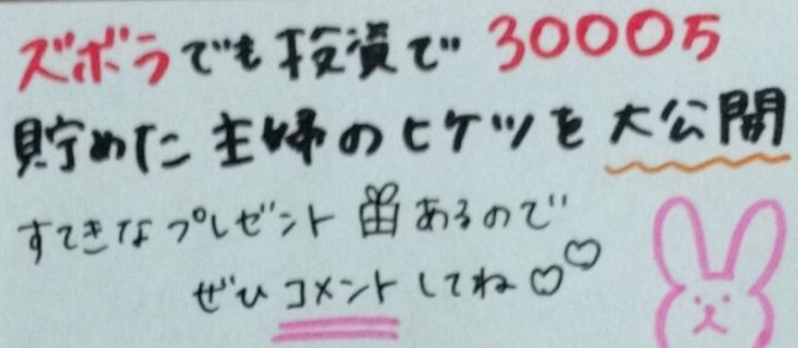 ズボラでも投資で3000万
貯めた主婦のヒケツを大公開
すてきなプレゼントあるので
ぜひコメントしてね♡♡